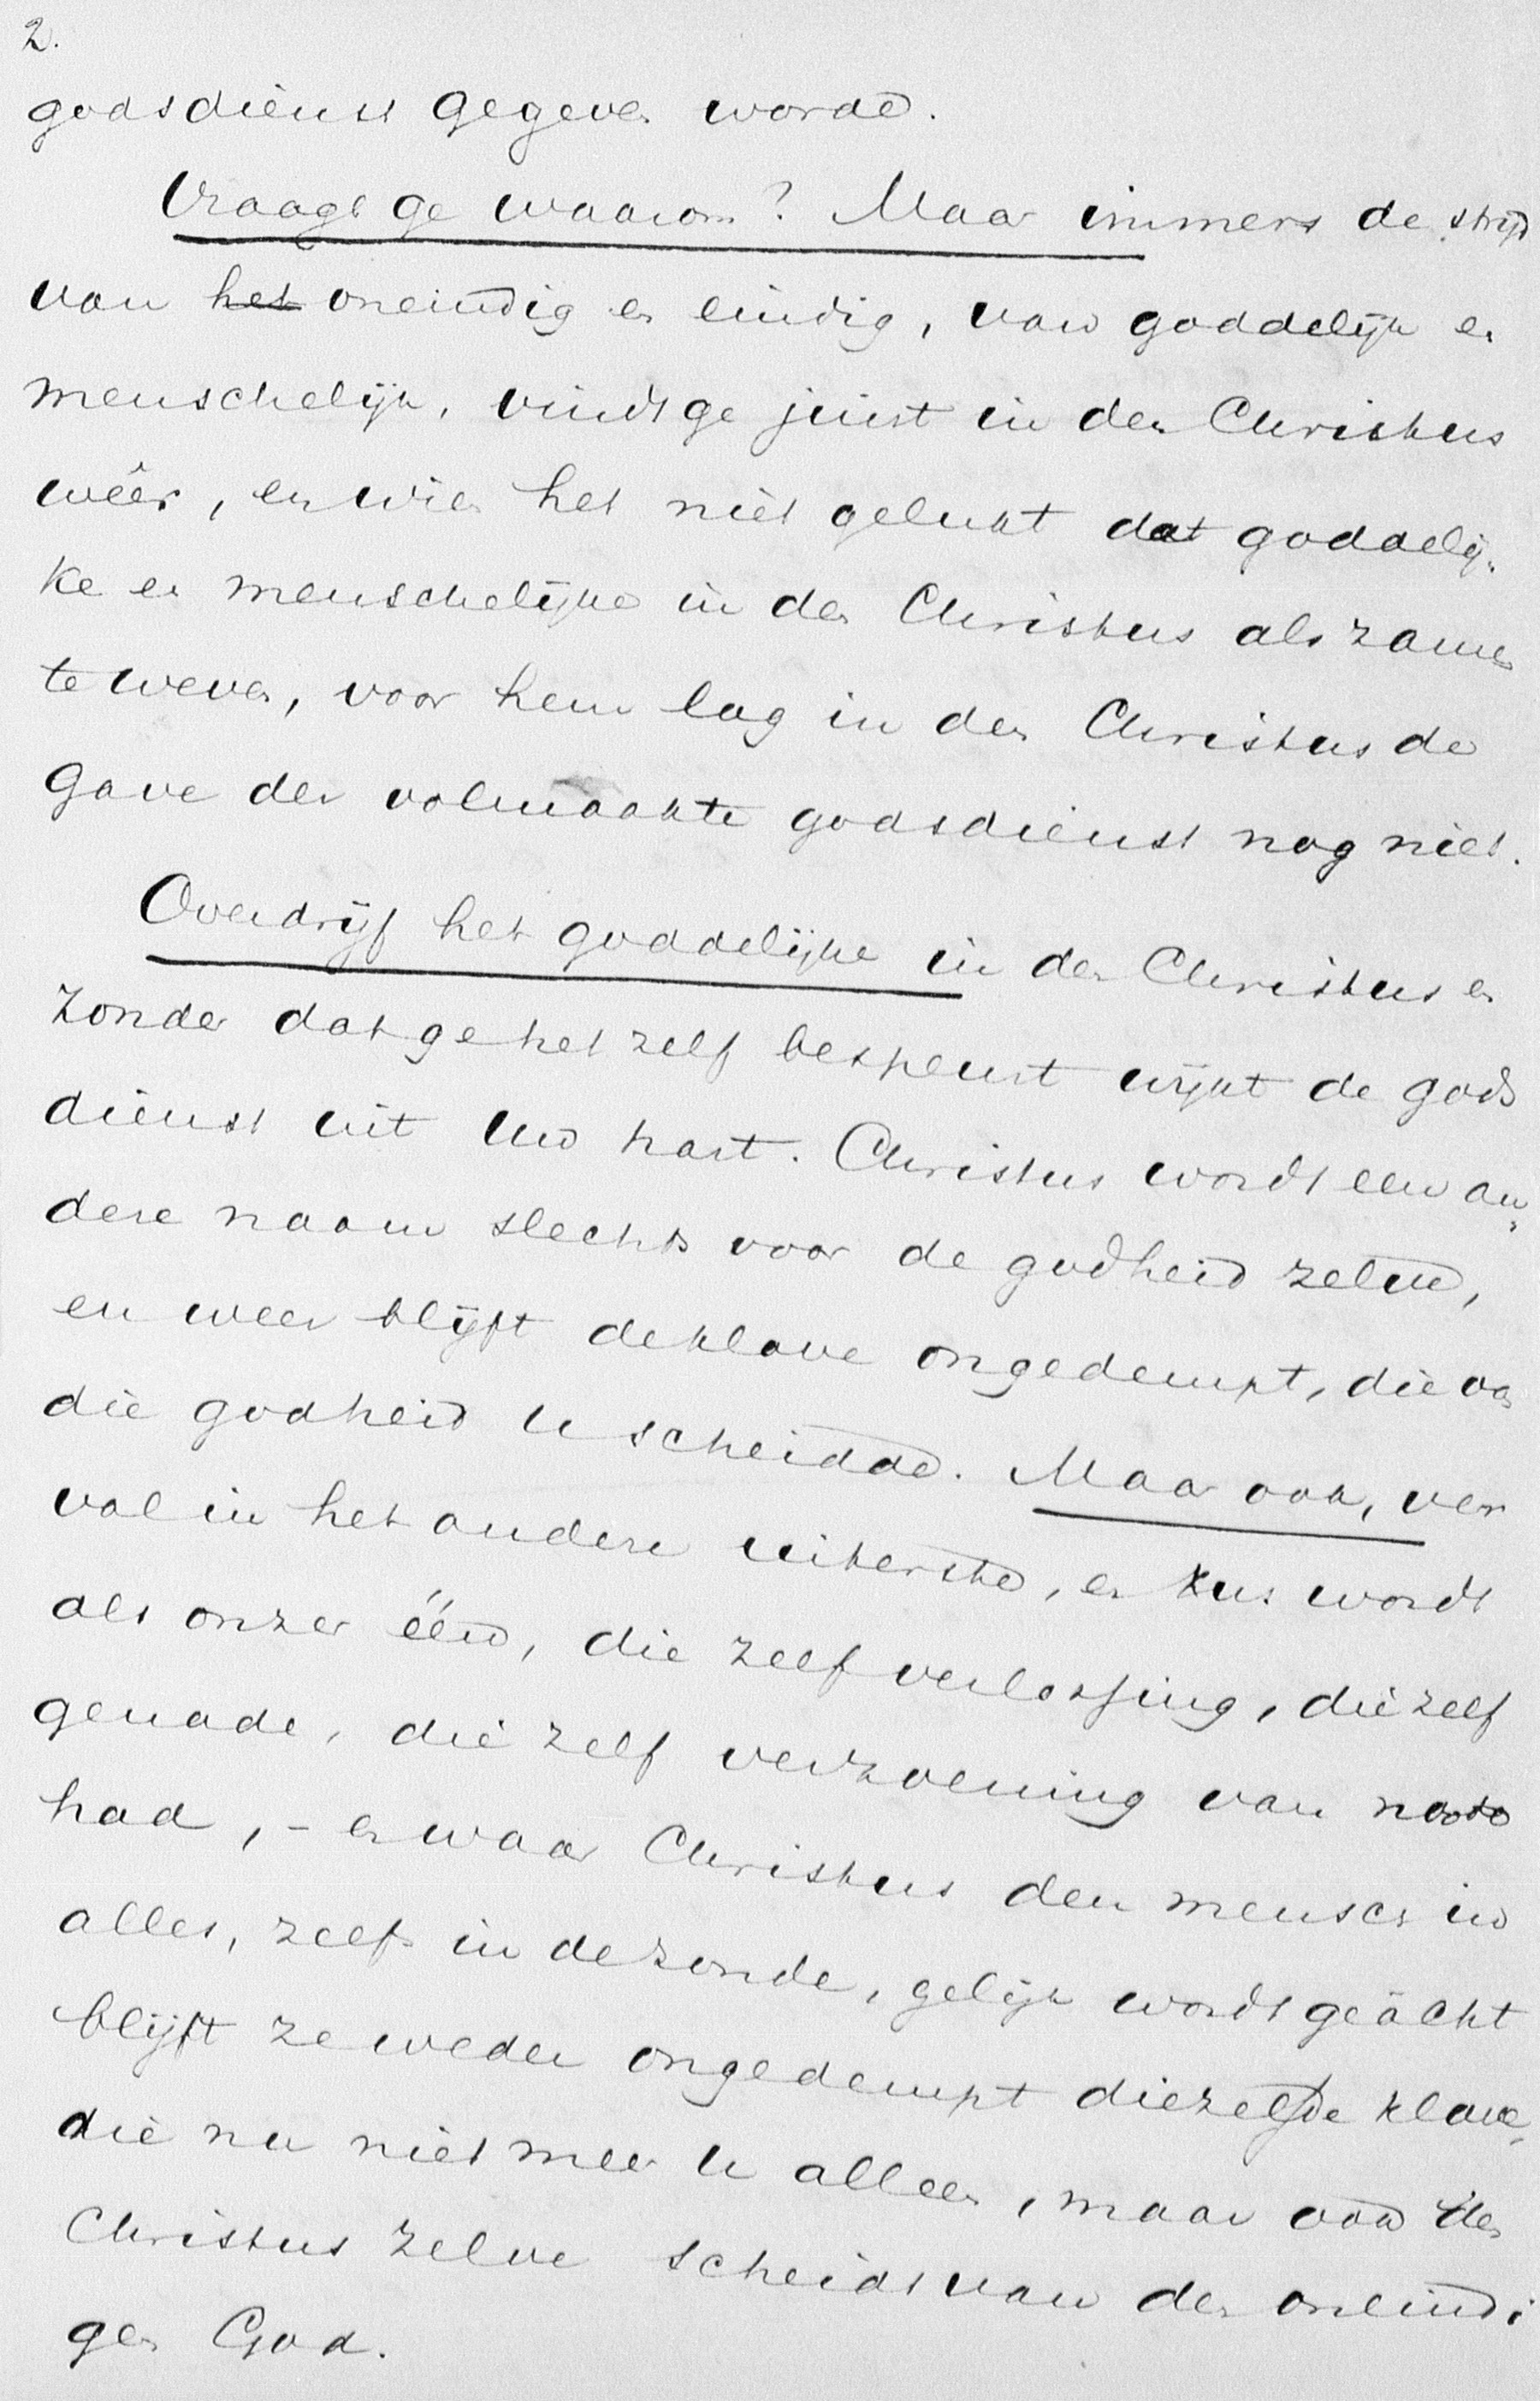 2.
godsdienst gegeven worden.
Vraagt ge waarom? Maar immers de strijd
van het oneindig en eindig, van goddelijk en
menschelijk, vindt ge juist in den Christus
wêer, en wien het niet gelukt dat goddelij-
ke en menschelijke in den Christus als zamen
te weven, voor hem lag in den Christus de
gave der volmaakte godsdienst nog niet.
Overdrijf het goddelijke in den Christus en
zonder dat ge het zelf bespeurt wijkt de gods
dienst uit Uw hart. Christus wordt een an-
dere naam slechts voor de godheid zelve,
en weer blijft de klove ongedempt, die van
die godheid U scheidde. Maar ook, ver
val in het andere uiterste, en wordt
als onzer één, die zelf verlossing, die zelf
genade, die zelf verzoening van noode
had, - en waar Christus den mensch in
alles, zelfs in de zonde, gelijk wordt geächt
blijft ze weder ongedempt diezelfde klove,
die nu niet meer U alleen, maar ook den
Christus zelve scheidt van den oneindi
gen God.